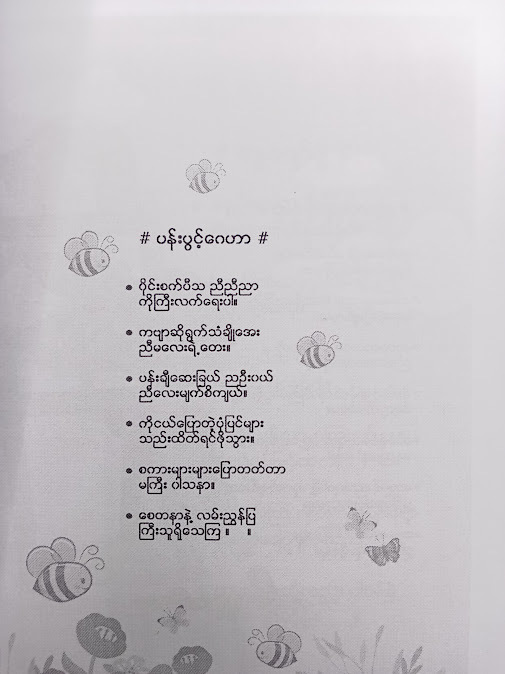 # ပန်းပွင့်ဂေဟာ #
• ဂိုင်းစက်ပီသ ညီညီညာ
ကိုကြီးလက်ရေးပါ။
• ကဗျာဆိုရွက်သံချိုအေး
ညီမလေးရဲ့တေး။
• ပန်းချီဆေးခြယ် ညဦးဝယ်
ညီလေးမျက်စိကျယ်။
• ကိုငယ်ပြောတဲ့ပုံပြင်များ
သည်းထိတ်ရင်ဖိုသွား။
• စကားများများပြောတတ်တာ
မကြီး ဝါသနာ။
• စေတနာနဲ့ လမ်းညွှန်ပြ
ကြီးသူရိုသေကြ ။ ။